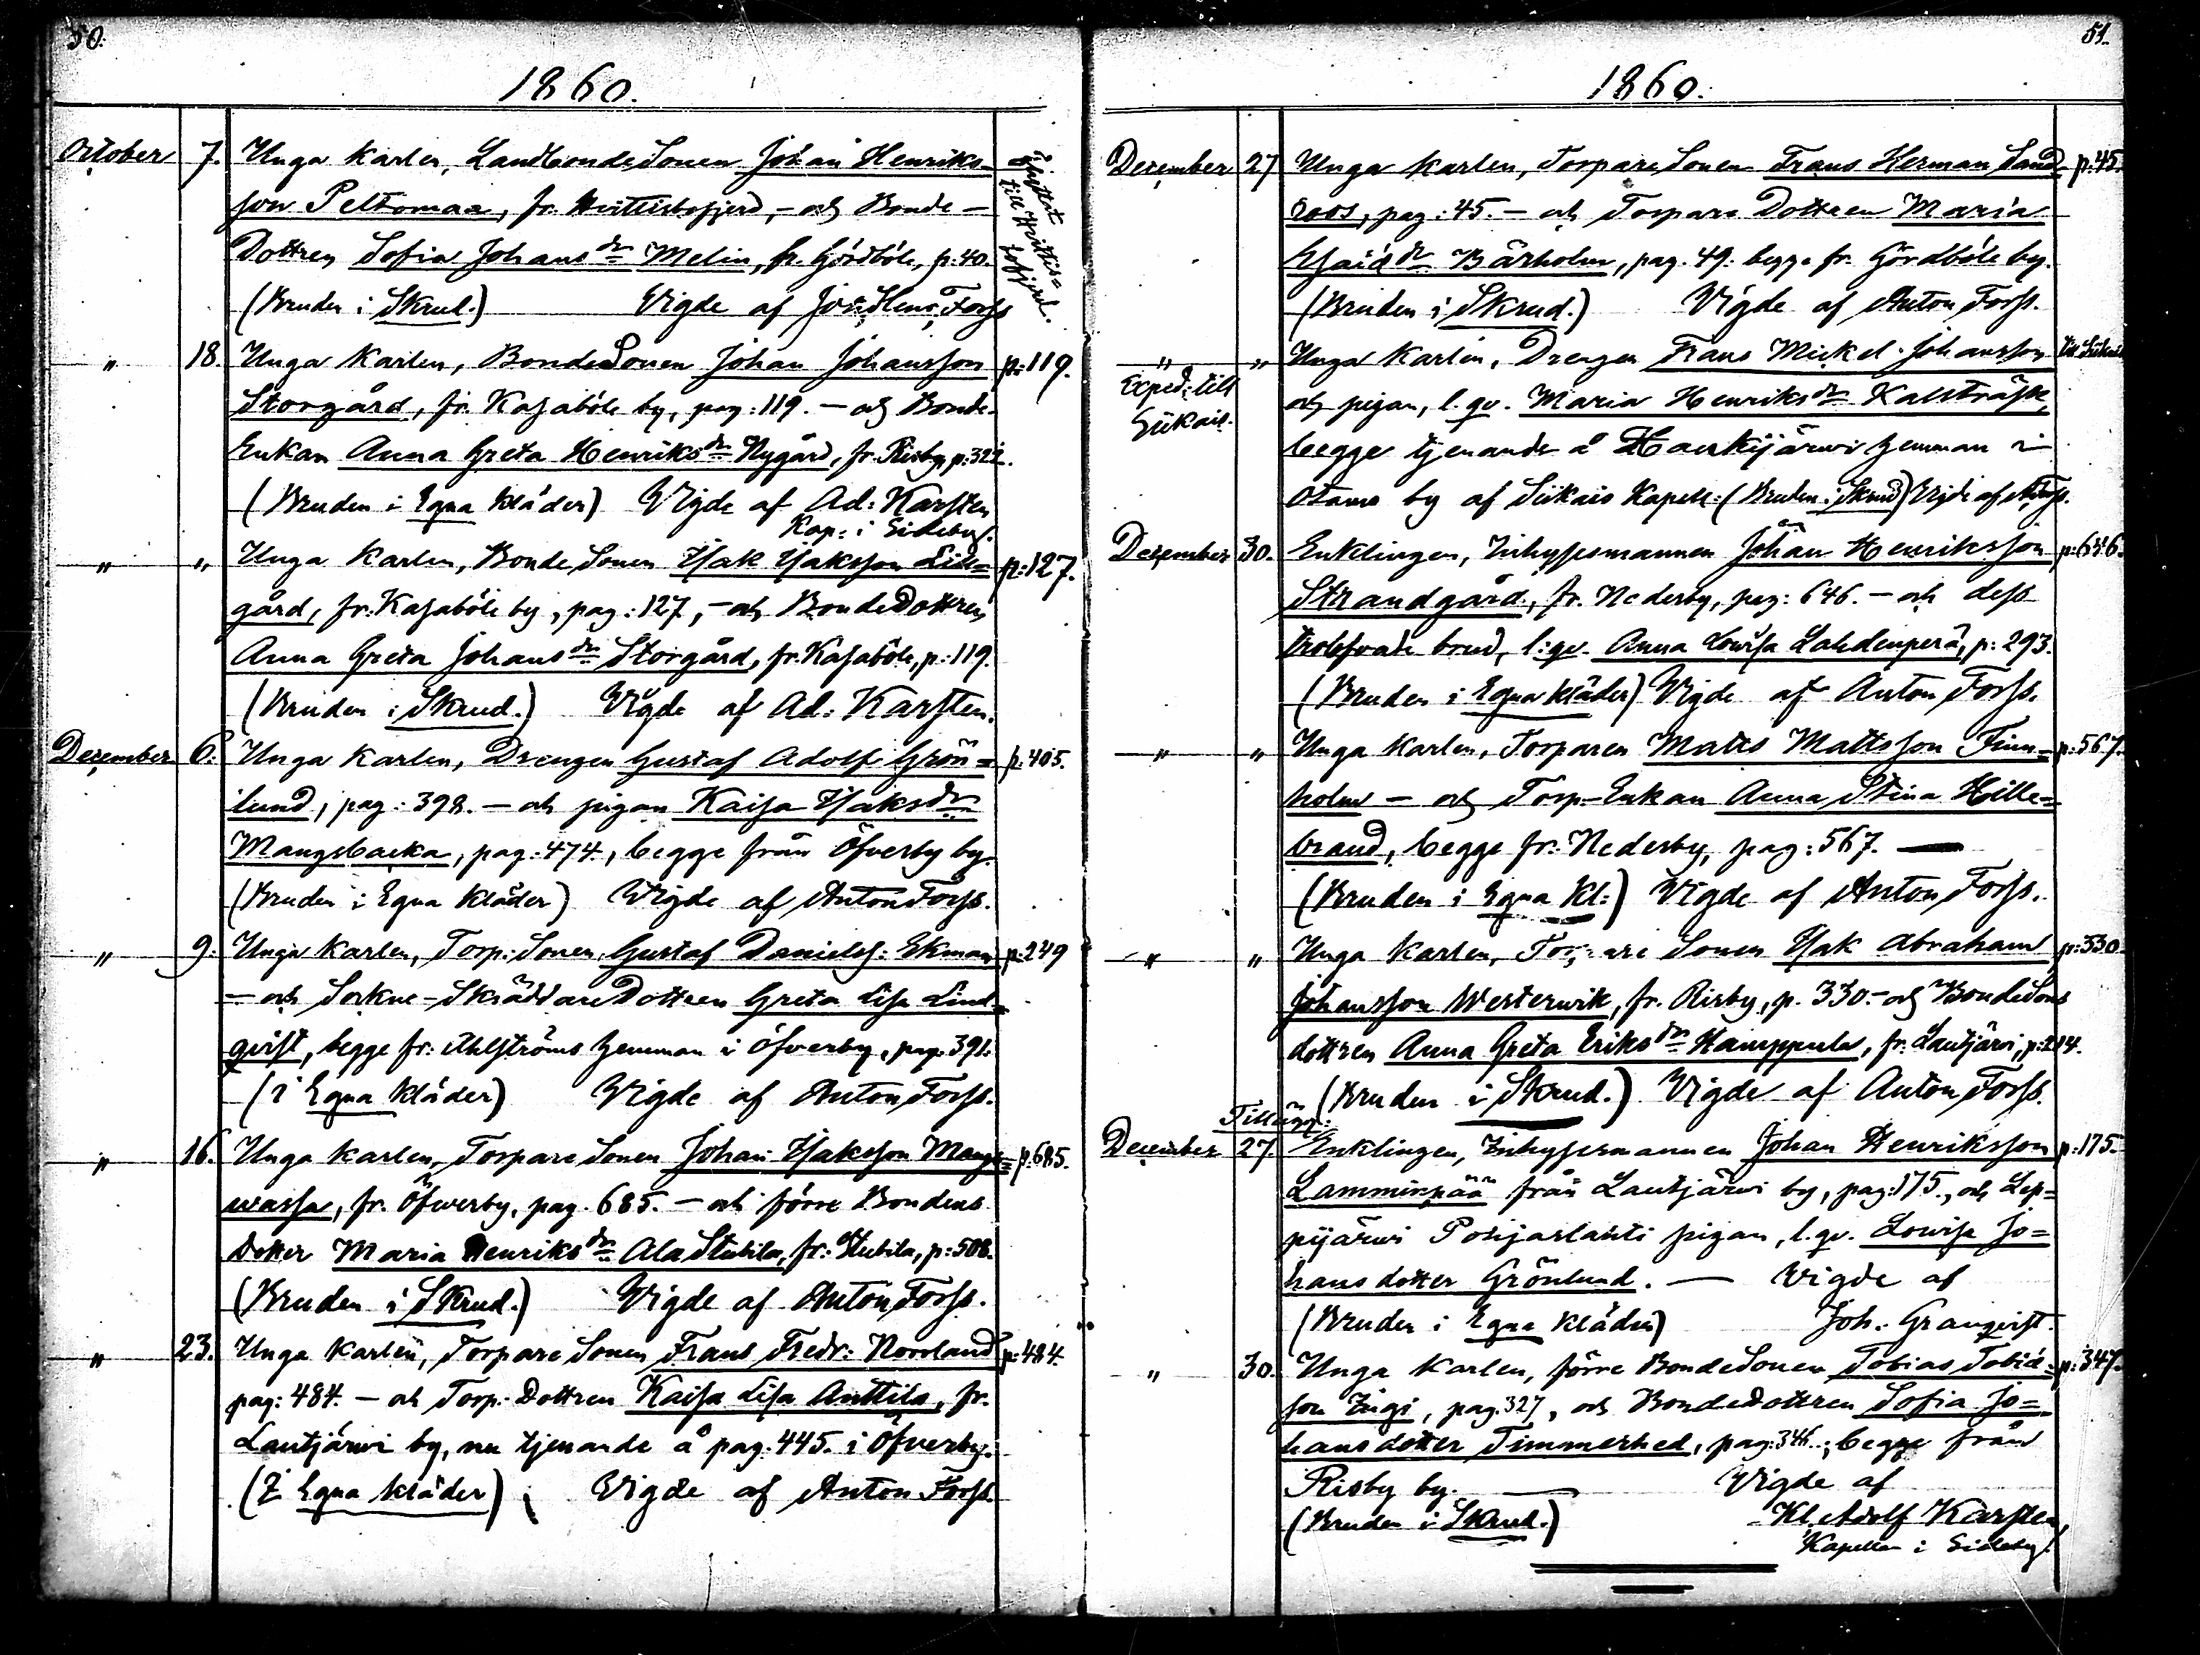 50.
1860.
October 7. Unga Karlen, LandbondeSonen Johan Henriks-
son Peltomaa, fr. Hvittisbofjerd, - och Bonde-
Dottren Sofia Johansdr Melin, fr. Gördböle, p. 40.
Flyttat till Hvittis=bofjerd.
(Bruden i Skrud.) Vigde af Joh: Henr: Forss
" 18. Unga Karlen, BondeSonen Johan Johansson p: 119.
Storgård, fr. Kasaböle by, pag: 119. - och Bonde-
Enkan Anna Greta Henriksdr Nygård, fr. Risby, p. 322.
(Bruden i Egna kläder) Vigde af Ad: Karsten
Kap: i Sideby.
" " Unga Karlen, BondeSonen Isak Isaksson Lill= p: 127.
gård, fr. Kasaböle by, pag: 127, - och BondeDottren
Anna Greta Johansdr Storgård, fr. Kasaböle, p: 119.
(Bruden i Skrud.) Vigde af Ad: Karsten.
December 6. Unga Karlen, Drengen Gustaf Adolf Grön= p: 405.
lund, pag: 398. - och pigan Kaisa Isaksdr
Mangsbacka, pag: 474., begge från Öfverby by.
(Bruden i Egna kläder) Vigde af Anton Forss.
" 9. Unga Karlen, Torp: Sonen Gustaf Daniels: Ekman p: 249
- och Sockne-SkräddareDottren Greta Lisa Lind-
qvist, begge fr: Ahlströms hemman i Öfverby, pag. 391.
(i Egna kläder) Vigde af Anton Forss.
" 16. Unga Karlen, TorpareSonen Johan Isaksson Mangs= p: 685.
wassa, fr. Öfwerby, pag. 685. - och förre Bondens
Dotter Maria Henriksdr AlaStubila, fr: Stubila, p: 508.
(Bruden i Skrud.) Vigde af Anton Forss.
" 23. Unga Karlen, TorpareSonen Frans Fredr: Norrland p: 484.
pag: 484. - och Torp: Dottren Kaisa Lisa Anttila, fr.
Lautjärwi by, nu tjenande å pag: 445. i Öfverby.
(I Egna kläder) Vigde af Anton Forss.
51.
1860.
December 27 Unga Karlen, TorpareSonen Frans Herman Sand- p: 45.
roos, pag: 45. - och Torpare Dottren Maria
Esaiædr Bärholm, pag. 49: begge fr. Gördböle by.
(Bruden i Skrud.) Vigde af Anton Forss.
" " Unga Karlen, Drengen Frans Mickel Johansson
Exped: till
Siikais.
och pigan, l. qv. Maria Henriksdr Kallträsk,
begge tjenande å Haukijärwi hemman i
Otamo by af Siikais Kapell: (Bruden i Skrud) Vigde af A. Forss.
December 30. Enklingen, Inhysesmannen Johan Henriksson p: 646.
Strandgård, fr. Nederby, pag: 646. - och dess
trolofvade brud, l: qv. Anna Lowisa Lahdenperä, p: 293.
(Bruden i Egna kläder) Vigde af Anton Forss.
" " Unga Karlen, Torparen Matts Mattsson Finn= p: 567.
holm - och Torp-Enkan Anna Stina Hille=
brand, begge fr: Nederby, pag: 567. -
(Bruden i Egna Kl:) Vigde af Anton Forss.
" " Unga Karlen, Torpare Sonen Isak Abraham p: 330.
Johansson Westerwik, fr. Risby, p. 330. - och BondeSons
dottren Anna Greta Eriksdr Hamppula, fr. Lautjärvi, p: 214.
(Bruden i Skrud.) Vigde af Anton Forss.
Tillägg:
December 27 Enklingen, Inhysesmannen Johan Henriksson p: 175.
Lamminpää från Lautjärwi by, pag: 175., och Lep=
pijärwi pigan, l. qv. Lowisa Jo=
hansdotter Grönlund. - Vigde af
(Bruden i Egna kläder) Joh. Granqvist.
" 30. Unga Karlen, förre BondeSonen Tobias Tobiæ- p: 347.
son Ingi, pag. 327, och BondeDottren Sofia Jo=
hansdotter Timmerhed, pag: 346., begge från
Risby by. - Vigde af
(Bruden i Skrud.) Kl. Adolf Karsten,
Kapellan i Sideby.